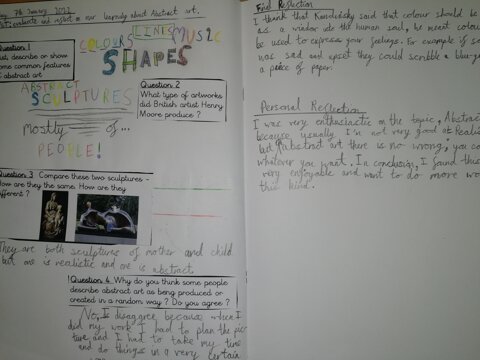 7th January 2022
evaluate and reflect on our learning about Abstract art.
Question 1
list, describe or show
some common features
of abstract art
COLOURS LINES MUSIC
SHAPES
ABSTRACT
SCULPTURES
Mostly of...
PEOPLE!
Question 2
What type of artworks
did British artist Henry
Moore produce ?
Question 3 Compare these two sculptures -
How are they the same. How are they
different ?
They are both sculptures of mother and child
but one is realistic and one is abstract
Question 4. Why do you think some people
describe abstract art as being produced or
created in a random way ? Do you agree ?
No, I disagree because when I
did my work I had to plan the pic-
ture and I had to take my time
and do things in a very certain
Final Reflection
I think that Kandinsky said that colour should be
as a window into the human soul, he meant colour
be used to express your feelings. For example if so
was sad and upset they could scribble a blue
a piece of paper.
Personal Reflection
I was very enthusiastic on the topic, Abstract
because usually I'm not very good at Realis
but Abstract art there is no wrong, you can
whatever you want. In conclusion, I found this
very enjoyable and want to do more wo
this kind.